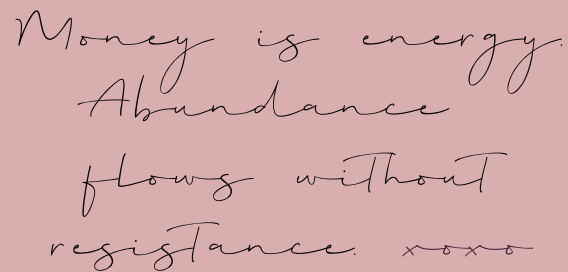 Money is energy.
Abundance
flows without
resistance. xoxo